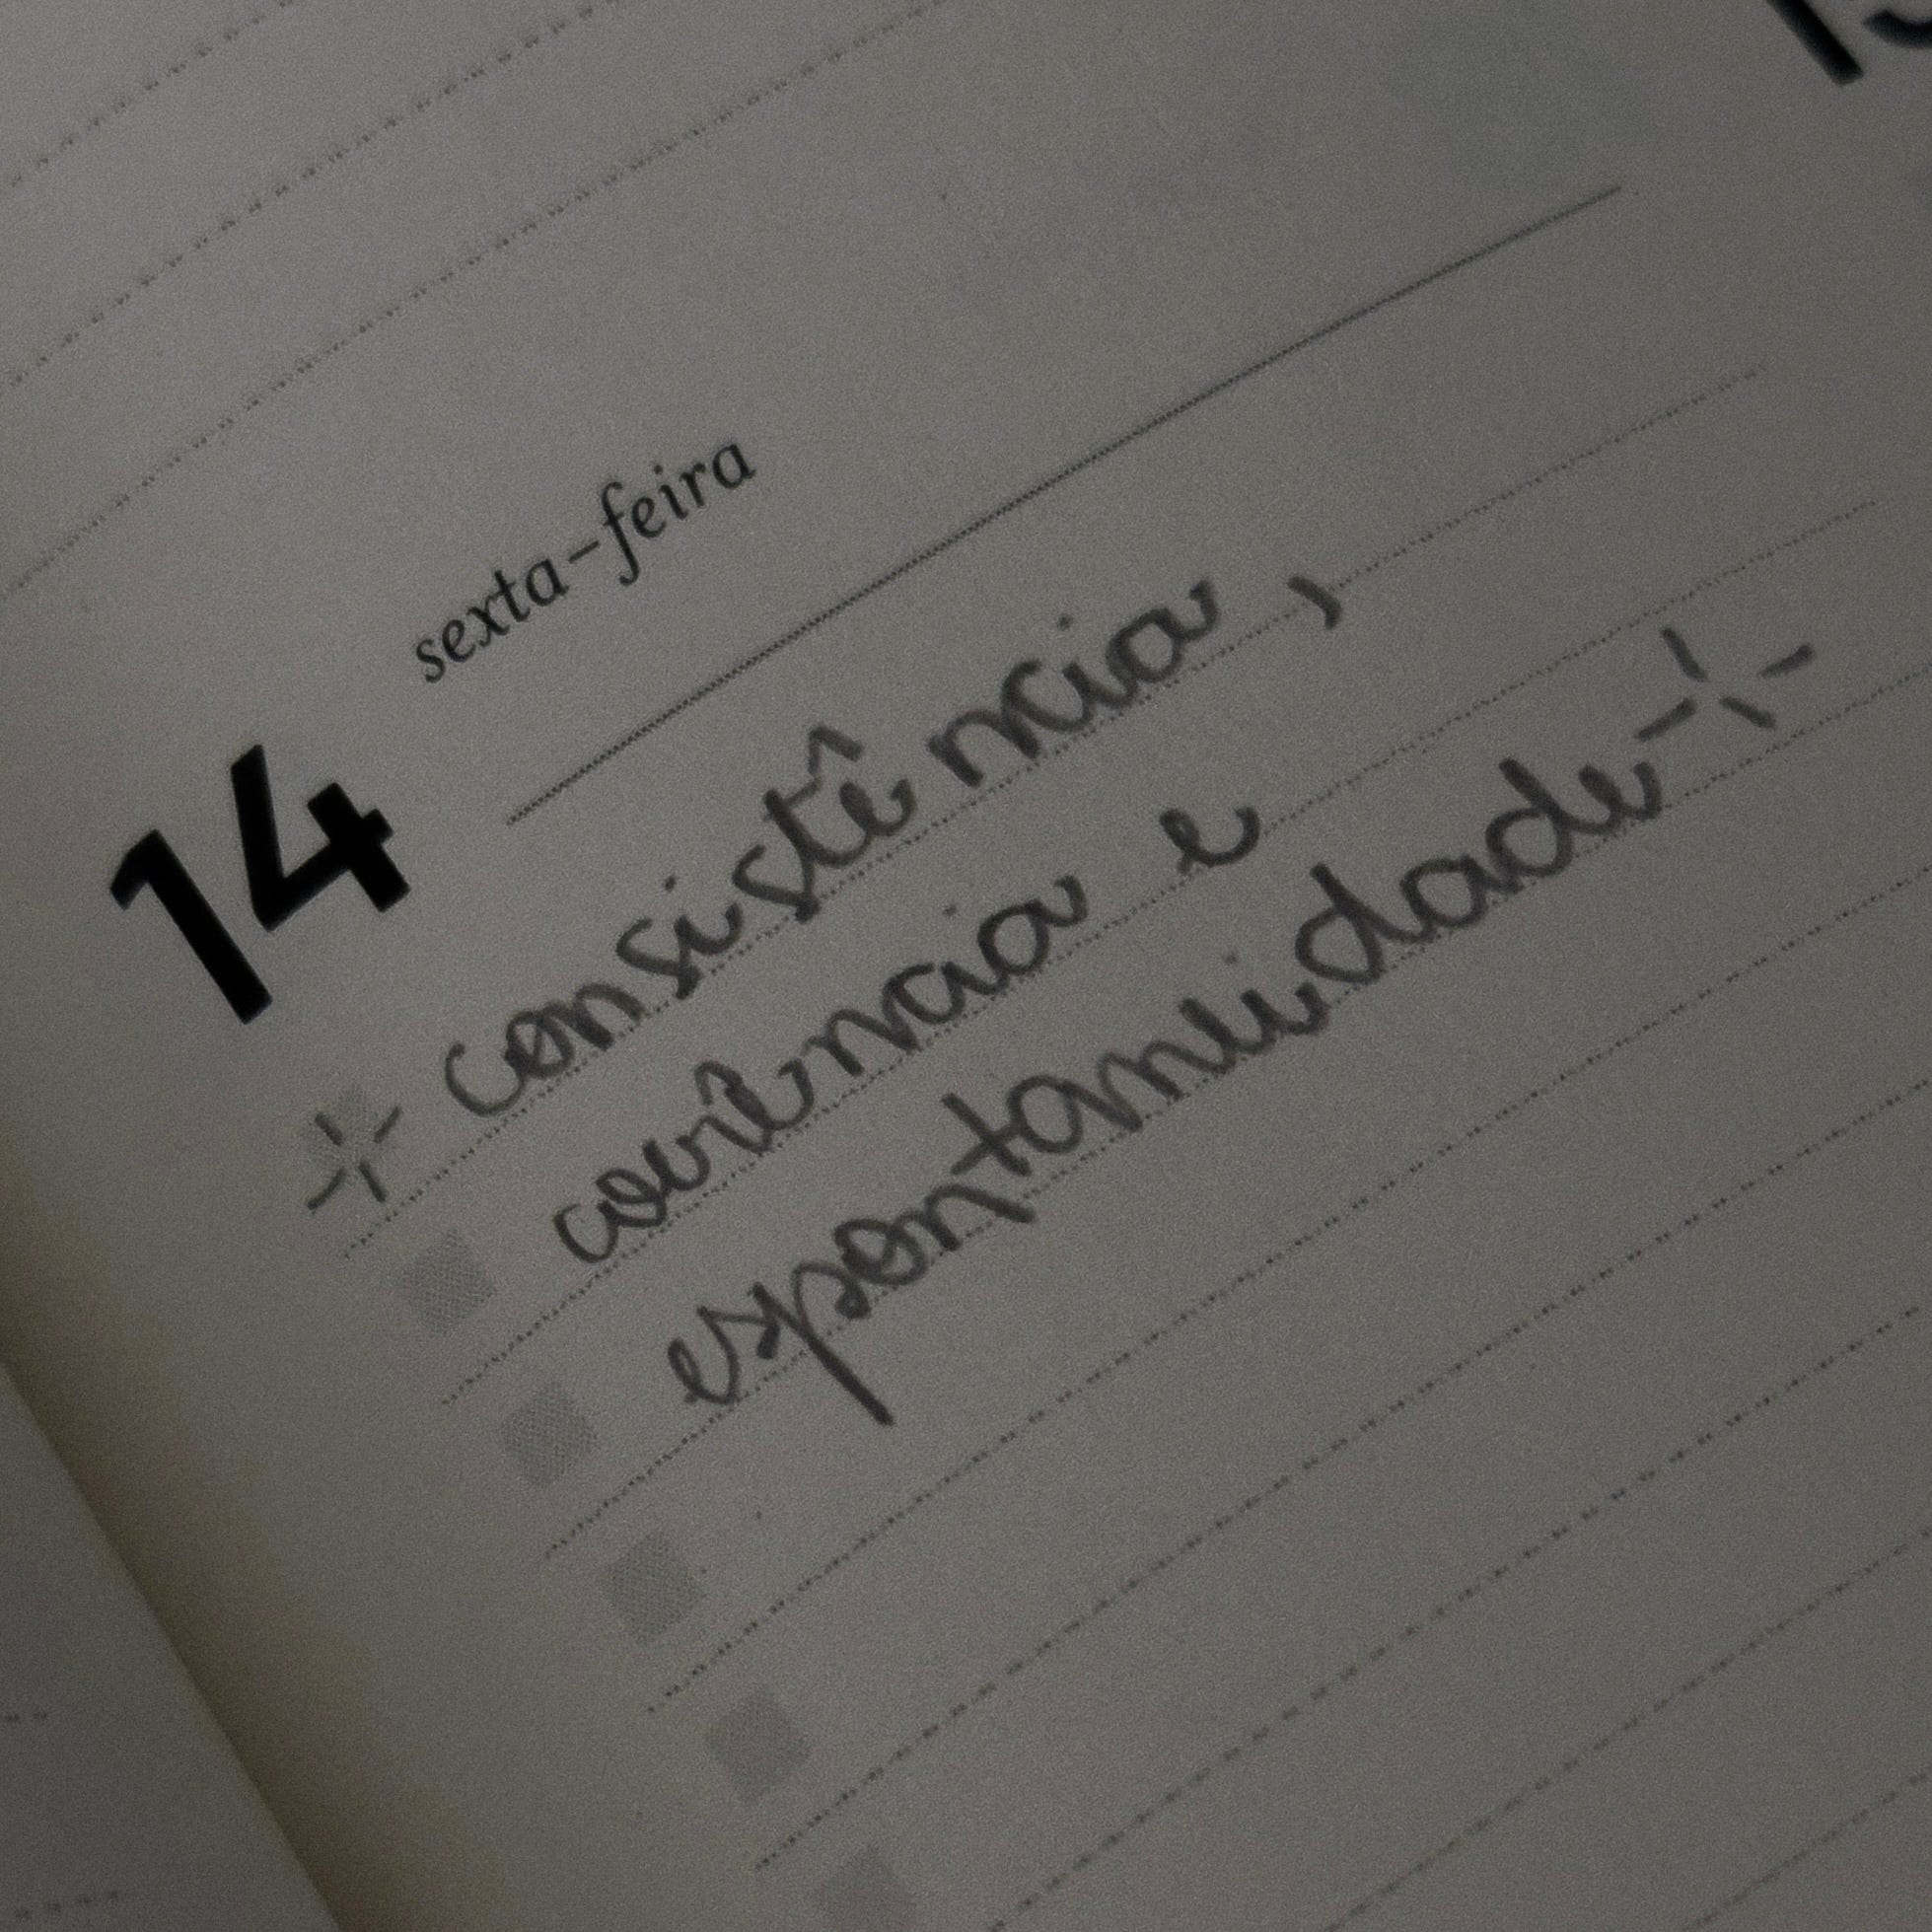 14 sexta-feira
consistência,
coerência e
espontaneidade
15